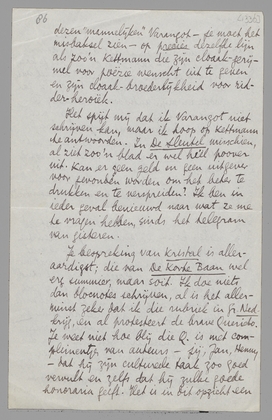 86
dezen "mannelijken" Varangot – je moet het
misbaksel zien – op precies dezelfde lijn
als zoo'n Kettmann die zijn cloaak-gerij-
mel voor poëzie wenscht uit te geven
en zijn cloaak-broederlijkheid voor rid-
der-heroïek.
Het spijt mij dat ik Varangot niet
schrijven kan, maar ik hoop op Kettmann
te antwoorden. In De Sleutel misschien,
al ziet zoo'n blad er wel héél poover
uit. Kan er geen geld en geen uitgever
voor gevonden worden om het beter te
drukken en te verspreiden? Ik ben in
ieder geval benieuwd naar wat ze me
te vragen hebben, sinds het telegram
van gisteren.
Je bespreking van Kristal is aller-
aardigst; die van De Korte Baan wel
erg summier, maar soit. Ik doe niets
dan blocnotes schrijven, al is het aller-
minst zeker dat ik die rubriek in Gr. Ned.
krijg, en al protesteert de brave Querido.
Je weet niet hoe blij die Q. is met com-
plimentjes van auteurs – jij, Jan, Henny
– dat hij zijn cultureele taak zoo goed
vervult en zelfs dat hij zulke goede
honoraria geeft. Het is in dit opzicht een